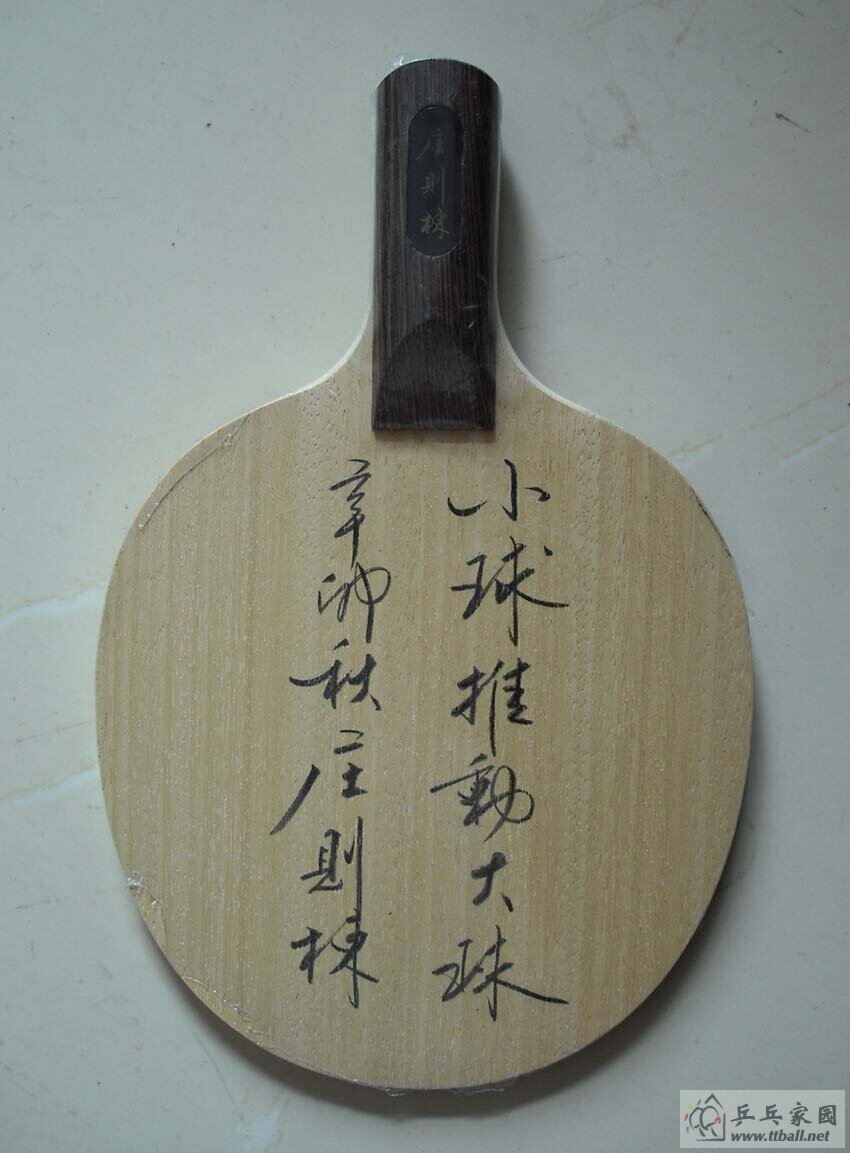 庄則栋
小球推動大球
辛卯秋庄則栋
乒乓家园
www.ttball.net